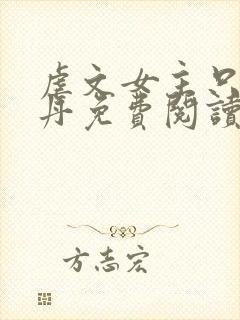 虐文女主只
丹免費閱讀
方志宏